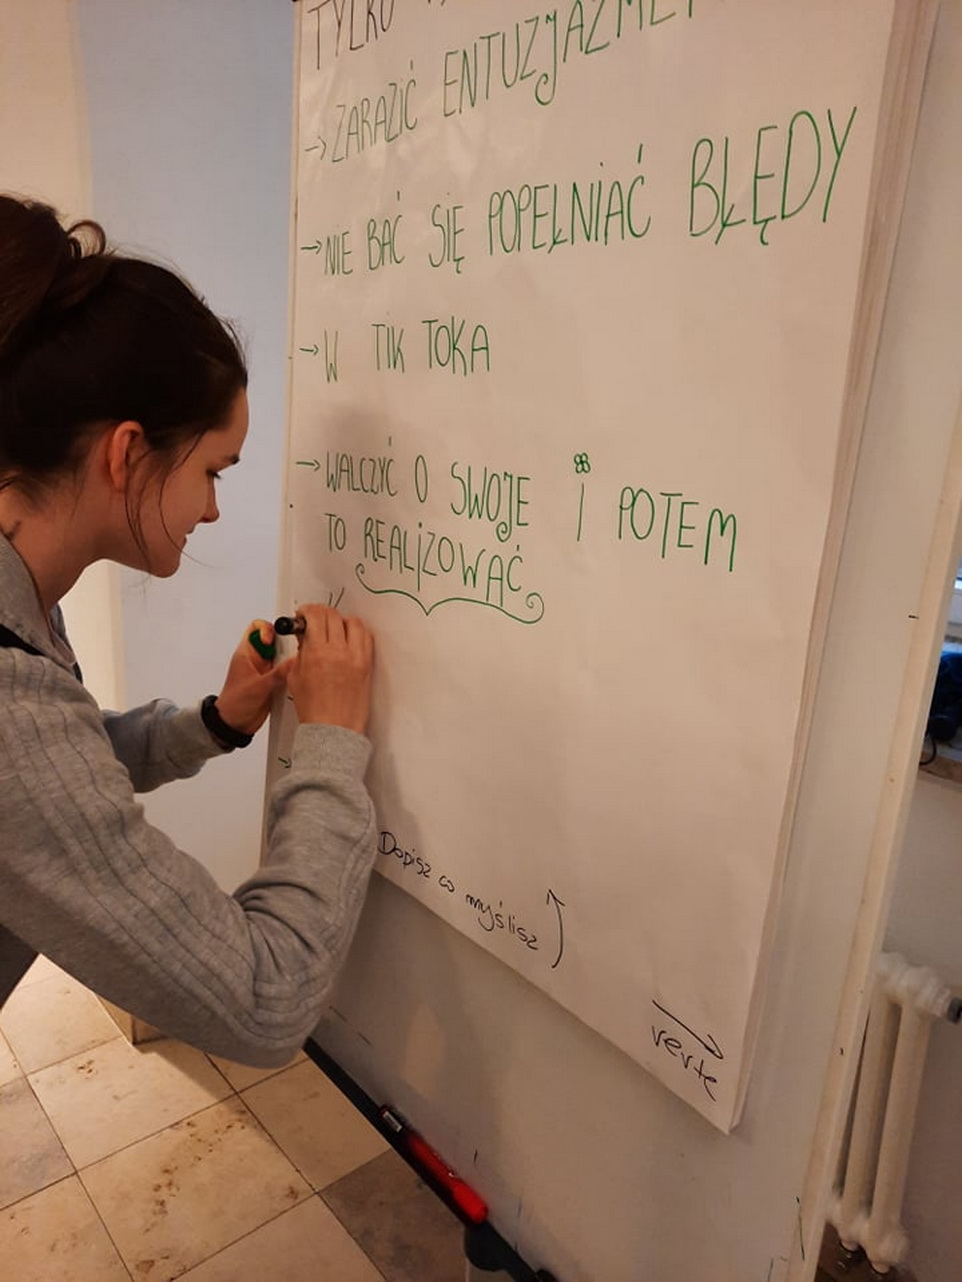 TYLKO
→ ZARAZIĆ ENTUZJAZMEM
→ NIE BAĆ SIĘ POPEŁNIAĆ BŁĘDY
→ W TIK TOKA
→ WALCZYĆ O SWOJE I POTEM
TO REALIZOWAĆ
→
Dopisz co myślisz
verte